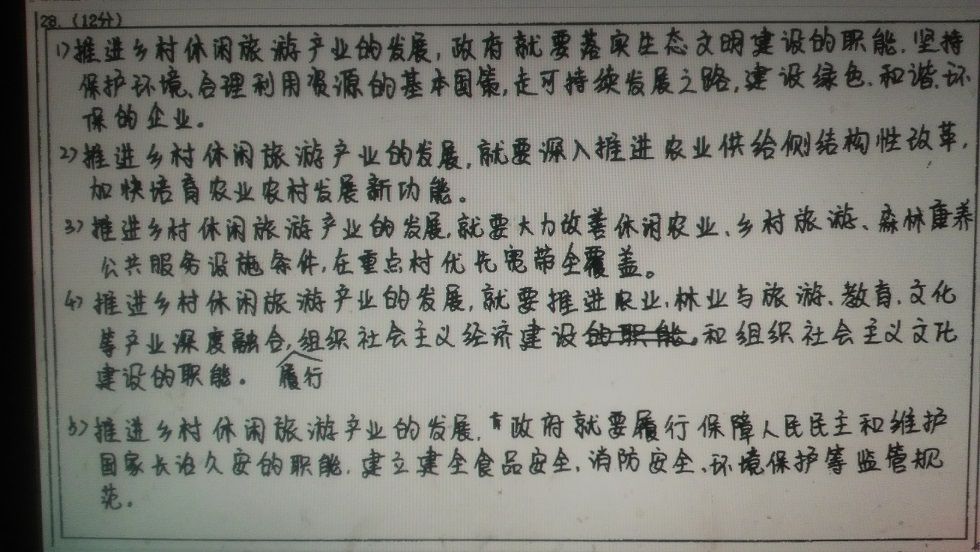 28.（12分）
1）推进乡村休闲旅游产业的发展，政府就要落实生态文明建设的职能，坚持
保护环境、合理利用资源的基本国策，走可持续发展之路，建设绿色、和谐、环
保的企业。
2）推进乡村休闲旅游产业的发展，就要深入推进农业供给侧结构性改革，
加快培育农业农村发展新功能。
3）推进乡村休闲旅游产业的发展，就要大力改善休闲农业、乡村旅游、森林康养
公共服务设施条件，在重点村优先宽带全覆盖。
4）推进乡村休闲旅游产业的发展，就要推进农业、林业与旅游、教育、文化
等产业深度融合，组织社会主义经济建设的职能，和组织社会主义文化
建设的职能。 履行
5）推进乡村休闲旅游产业的发展，政府就要履行保障人民民主和维护
国家长治久安的职能，建立健全食品安全、消防安全、环境保护等监管规
范。